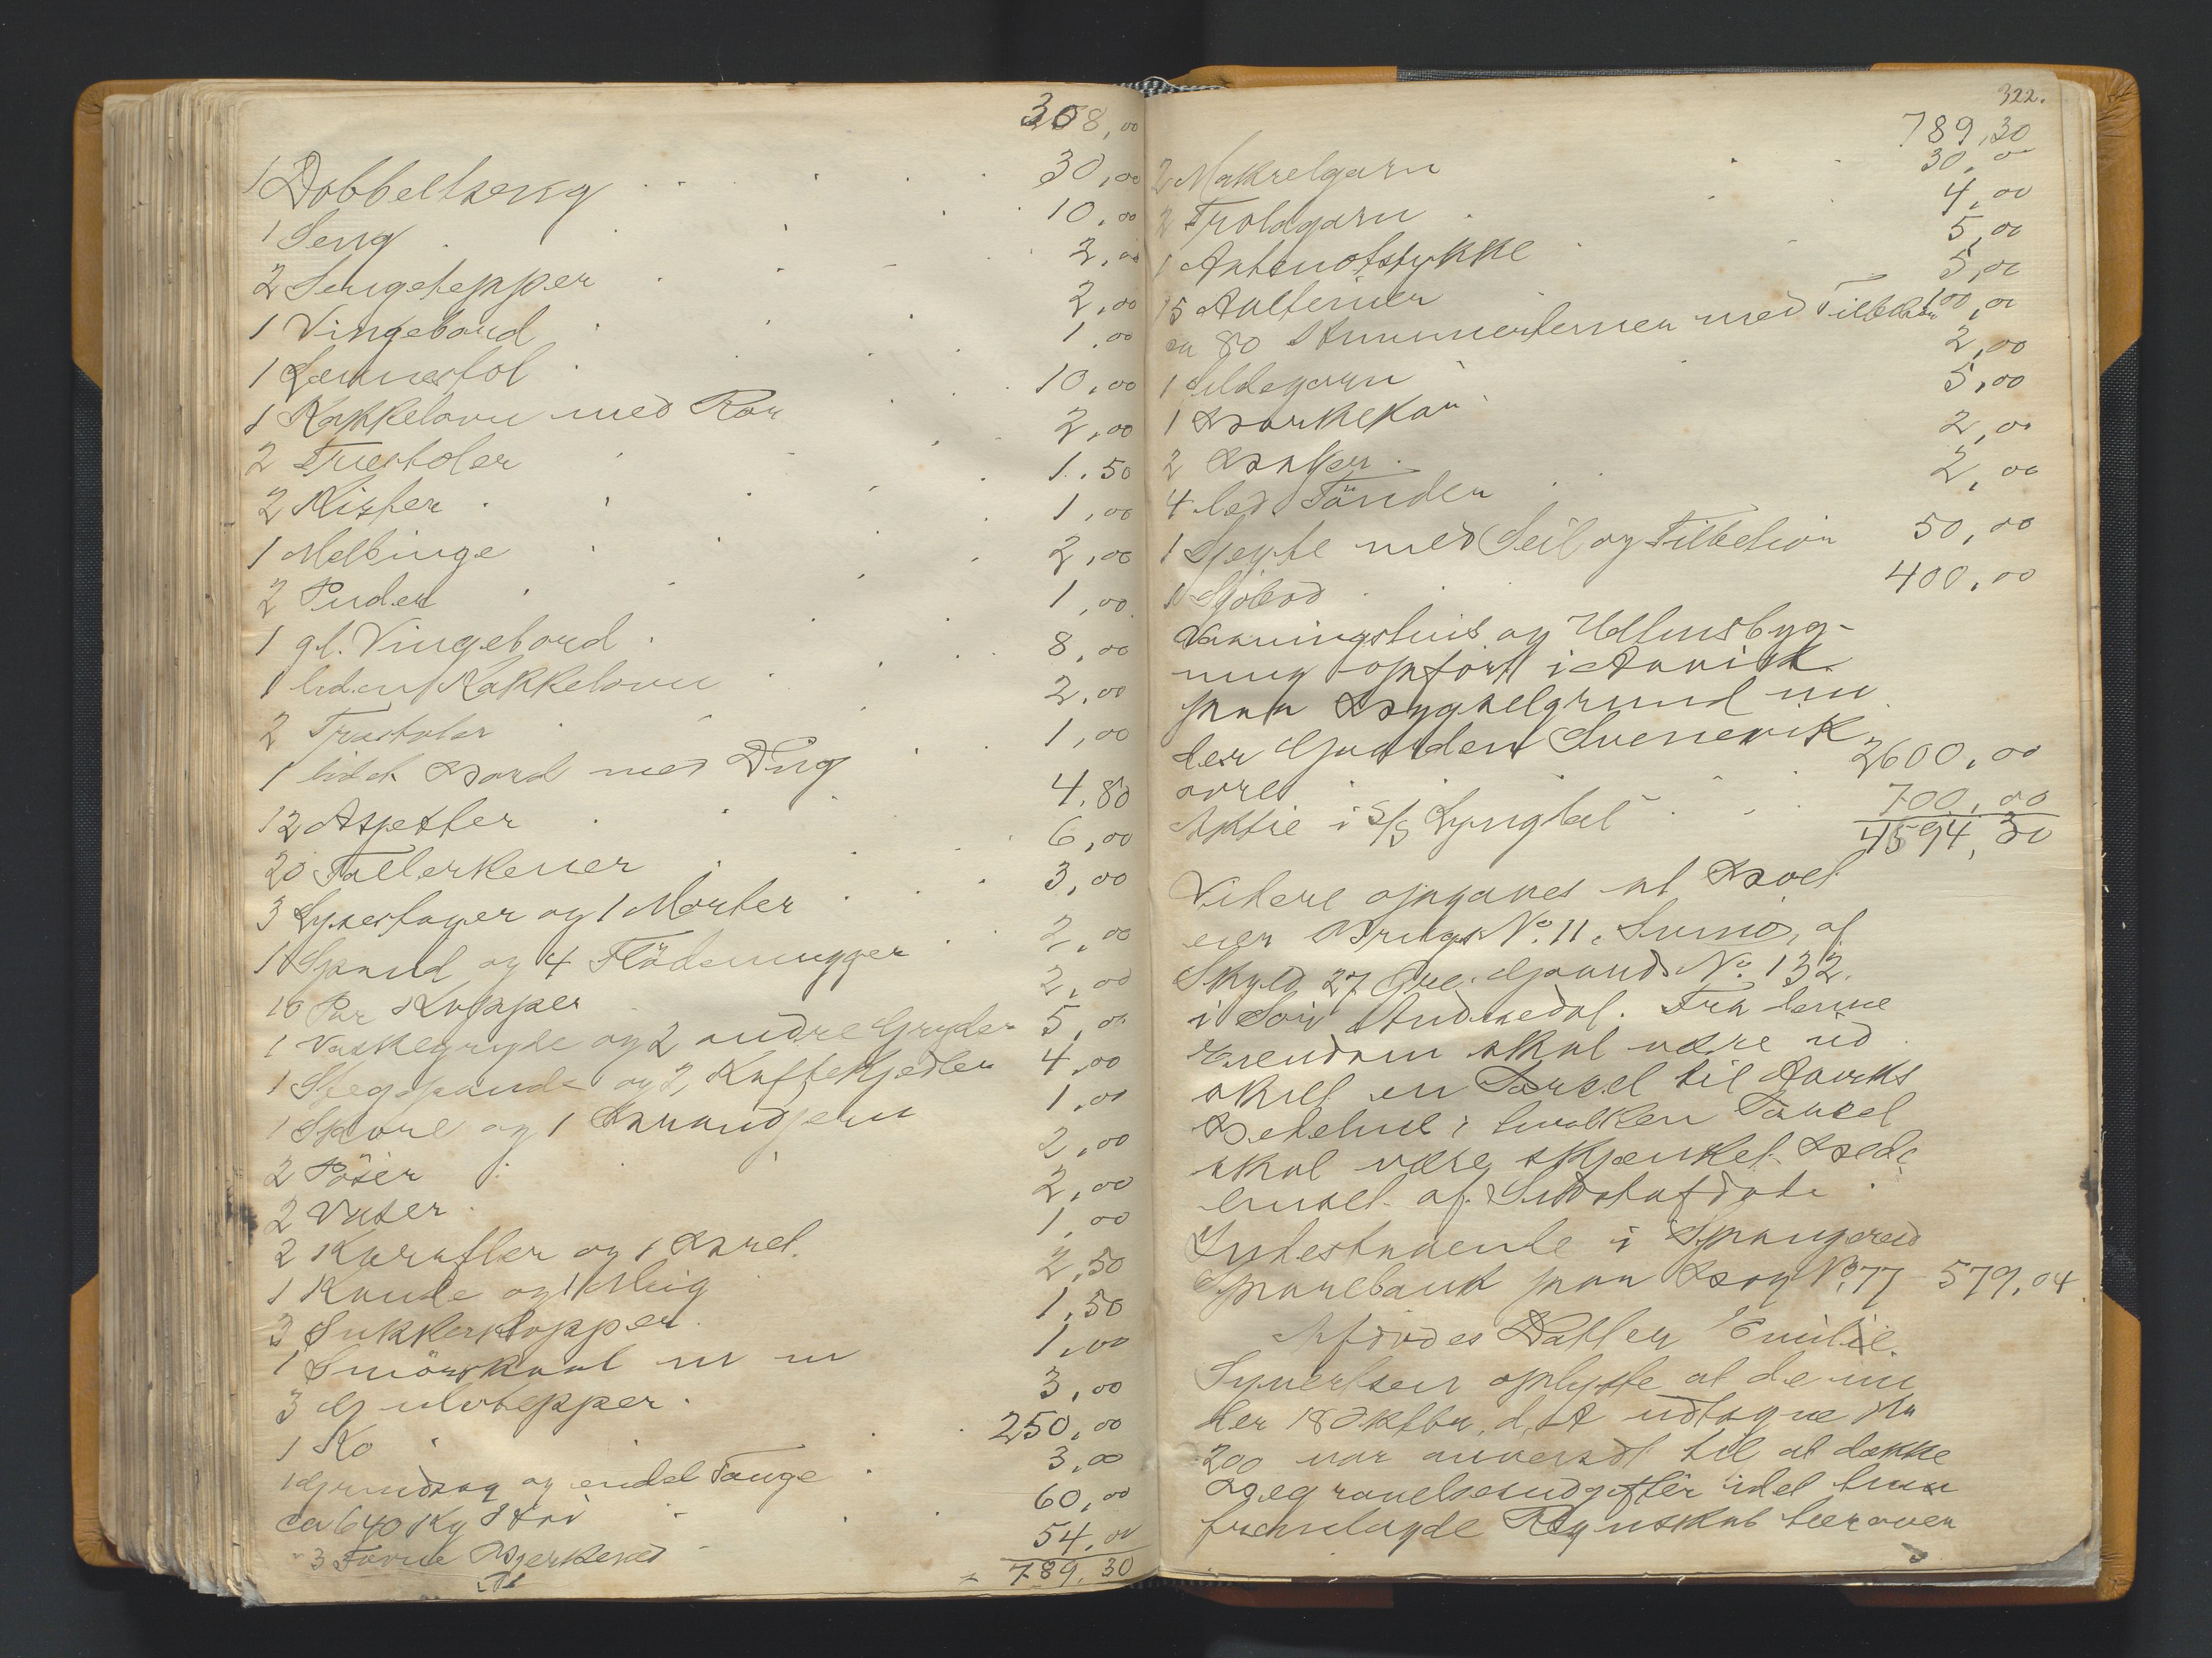 308,00
1 Dobbeltseng 30,00
1 Seng 10,00
2 Sengetepper 2,00
1 Vingebord 2,00
1 Lænestol 1,00
1 Kakkelovn med Rør 10,00
2 Træstoler 2,00
2 Kister 1.50
1 Melbinge 1,00
2 Puder 2,00
1 gl. Vingebord 1,00
1 liden Kakkelovn 8,00
2 Træstoler 2,00
1 lidet Bord med Dug 1,00
12 Asjetter 4,80
20 Tallerkener 6,00
3 Lysestager og 1 Morter 3,00
1 Spand og 4 Flödemugger 2,00
10 Par Kopper 2,00
1 Vaskegryde og 2 andre Gryder 5,00
1 Stegepande og 2 Kaffekjedler 4,00
1 og 1 1,00
2 Pöser 2,00
2 Vaser 2,00
2 Karafler og 1 Bret 1,00
1 Kande og 1 Mug 2,50
3 Sukkerkopper 1,50
1 Smörskaal m m 1,00
3 Gulvtepper 3,00
1 Ko 250,00
1 Grindsag og endel Tauge 3,00
ca 640 Kg Höi 60,00
3 Favne Bjerkeved 54,00
789,30
322.
789,30
2 Makrelgarn 30,00
2 Troldgarn 4,00
1 Aatenotstykke 5,00
15 Aalteiner 5,00
ca 80 Hummerteiner med Tilbehør 100,00
1 Sildegarn 2,00
1 Barkekar 5,00
2 2,00
4 Lod Tönder 2,00
1 Sjegte med Seil og Tilbehør 50,00
1 Sjøbod 400,00
Vaaningshus og Udhusbyg-
ning opført i Aavik
paa Bygselgrund un
der Gaarden Svenevik
øvre 2600,00
Aktie i S/S Lyngdal 700,00
4594,30
Videre opgaves at Boet
eier Brugs No. 11, af
Skyld 27 Øre. Gaards No. 132.
i Sør Audnedal. Fra denne
Eiendom skal være ud
skilt en Parsel til Aaviks
Bedehus, hvilken Parsel
skal være skjænket Bede
huset af Sidstafdøde.
Indestaaende i Spangereid
Sparebank paa Bog No. 77 579,04
Afdødes Datter Emilie
Syvertsen oplyste at de un
der 18 Oktbr. d. A udtagne Kr
200 var anvendt til at dække
Begravelsesudgifter idet hun
fremlagde Regnskab herover